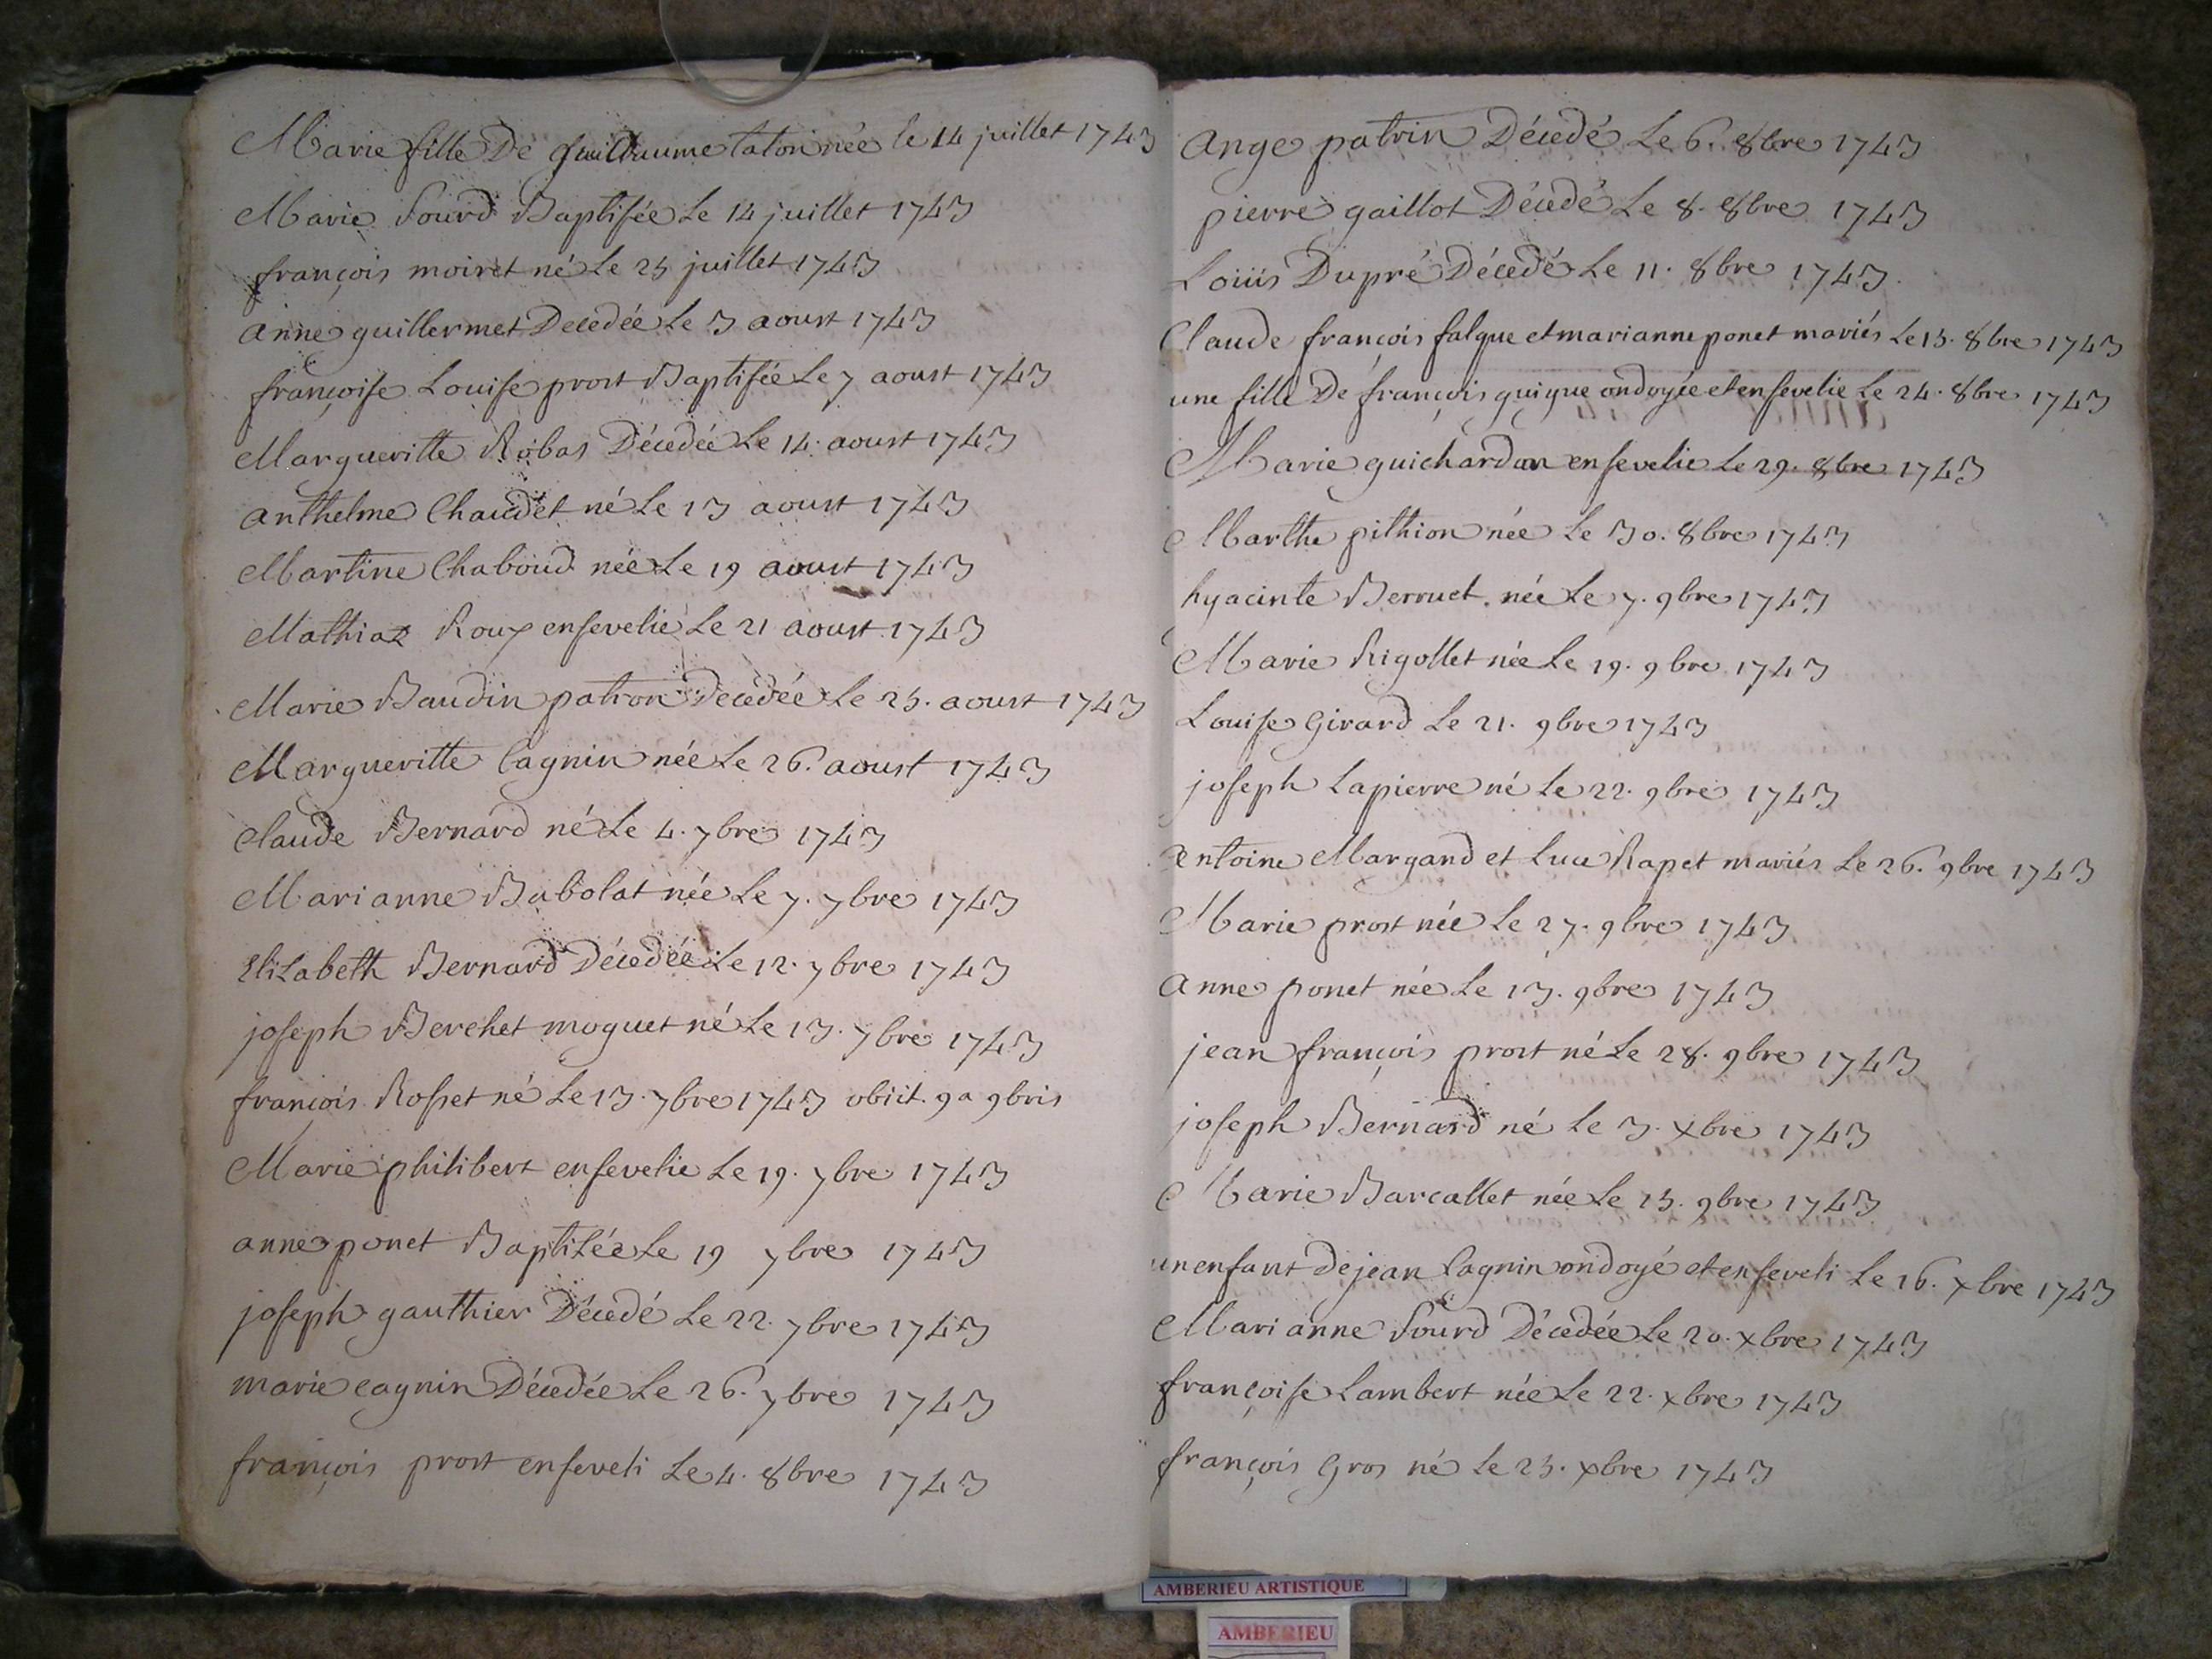 Marie fille De guillaume taton née le 14 juillet 1743
Marie Sourd Baptisée Le 14 juillet 1743
françois moiret né Le 25 juillet 1743
anne guillermet Decedée Le 3 aoust 1743
françoise Louise prost Baptisée Le 7 aoust 1743
Margueritte Robas Décedée Le 14. aoust 1743
anthelme Chaudet né Le 13 aoust 1743
Martine Chaboud née Le 19 aoust 1743
Mathiaz Roux ensevelie Le 21 aoust 1743
Marie Baudin patron Decedée Le 25. aoust 1743
Margueritte Cagnin née Le 26. aoust 1743
Claude Bernard né Le 4. 7bre 1743
Marianne Babolat née Le 7. 7bre 1743
Elizabeth Bernard Décedée Le 12. 7bre 1743
joseph Berchet moguet né Le 13. 7bre 1743
françois Rosset né Le 13. 7bre 1743 obiit. 9a 9bris
Marie philibert ensevelie Le 19. 7bre 1743
anne ponet Baptisée Le 19 7bre 1743
joseph gauthier Décedé Le 22. 7bre 1743
marie cagnin Décedée Le 26. 7bre 1743
françois prost enseveli Le 4. 8bre 1743
Ange patrin Décedé Le 6. 8bre 1743
pierre gaillot Décedé Le 8. 8bre 1743
Louis Dupré Décedé Le 11. 8bre 1743.
Claude françois falque et marianne ponet mariés Le 15. 8bre 1743
une fille De françois guigue ondoyée et ensevelie Le 24. 8bre 1743
Marie guichardon ensevelie Le 29. 8bre 1743
Marthe pithion née Le 30. 8bre 1743
hyacinte Berruet née Le 7. 9bre 1743
Marie Rigollet née Le 19. 9bre 1743
Louise Girard Le 21. 9bre 1743
joseph Lapierre né Le 22. 9bre 1743
Antoine Margand et Luce Rapet mariés Le 26. 9bre 1743
Marie prost née Le 27. 9bre 1743
Anne ponet née Le 13. 9bre 1743
jean françois prost né Le 28. 9bre 1743
joseph Bernard né Le 3. xbre 1743
Marie Barcallet née Le 15. 9bre 1743
un enfant de jean Cagnin ondoyé et enseveli Le 16. xbre 1743
Marianne Sourd Décedée Le 20. xbre 1743
françoise Lambert née Le 22. xbre 1743
françois Gros né Le 25. xbre 1743
AMBERIEU ARTISTIQUE
AMBERIEU